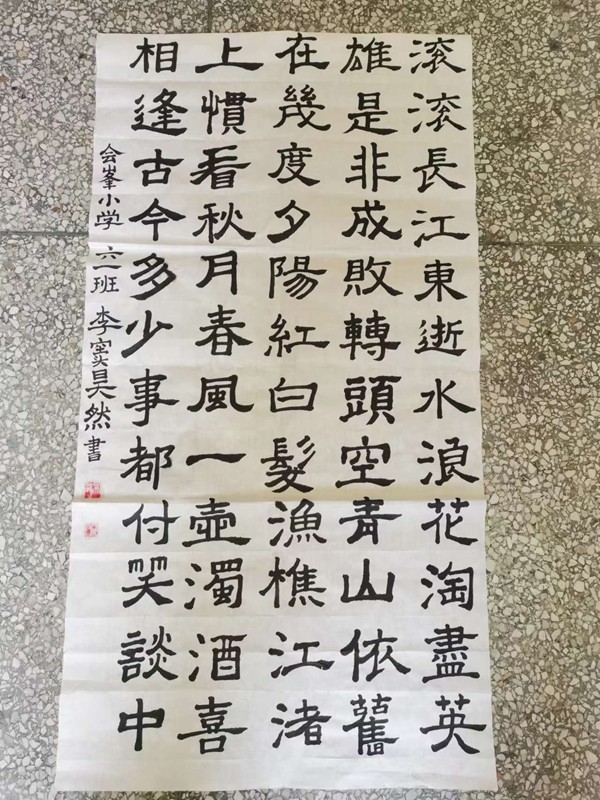 滚滚長江東逝水浪花淘盡英
雄是非成敗轉頭空青山依舊
在幾度夕陽紅白髮漁樵江渚
上慣看秋月春風一壶濁酒喜
相逢古今多少事都付笑談中
会峯小学 六一班 李雲昊然 書